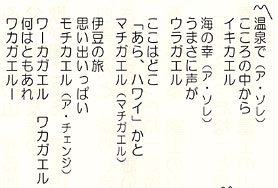 〽温泉で（ア・ソレ）
こころの中から
イキカエル
海の幸（ア・ソレ）
うまさに声が
ウラガエル
ここはどこ
「あら、ハワイ」かと
マチガエル（マチガエル）
伊豆の旅
思い出いっぱい
モチカエル（ア・チェンジ）
ワーカガエル　ワカガエル
何はともあれ
ワカガエルー